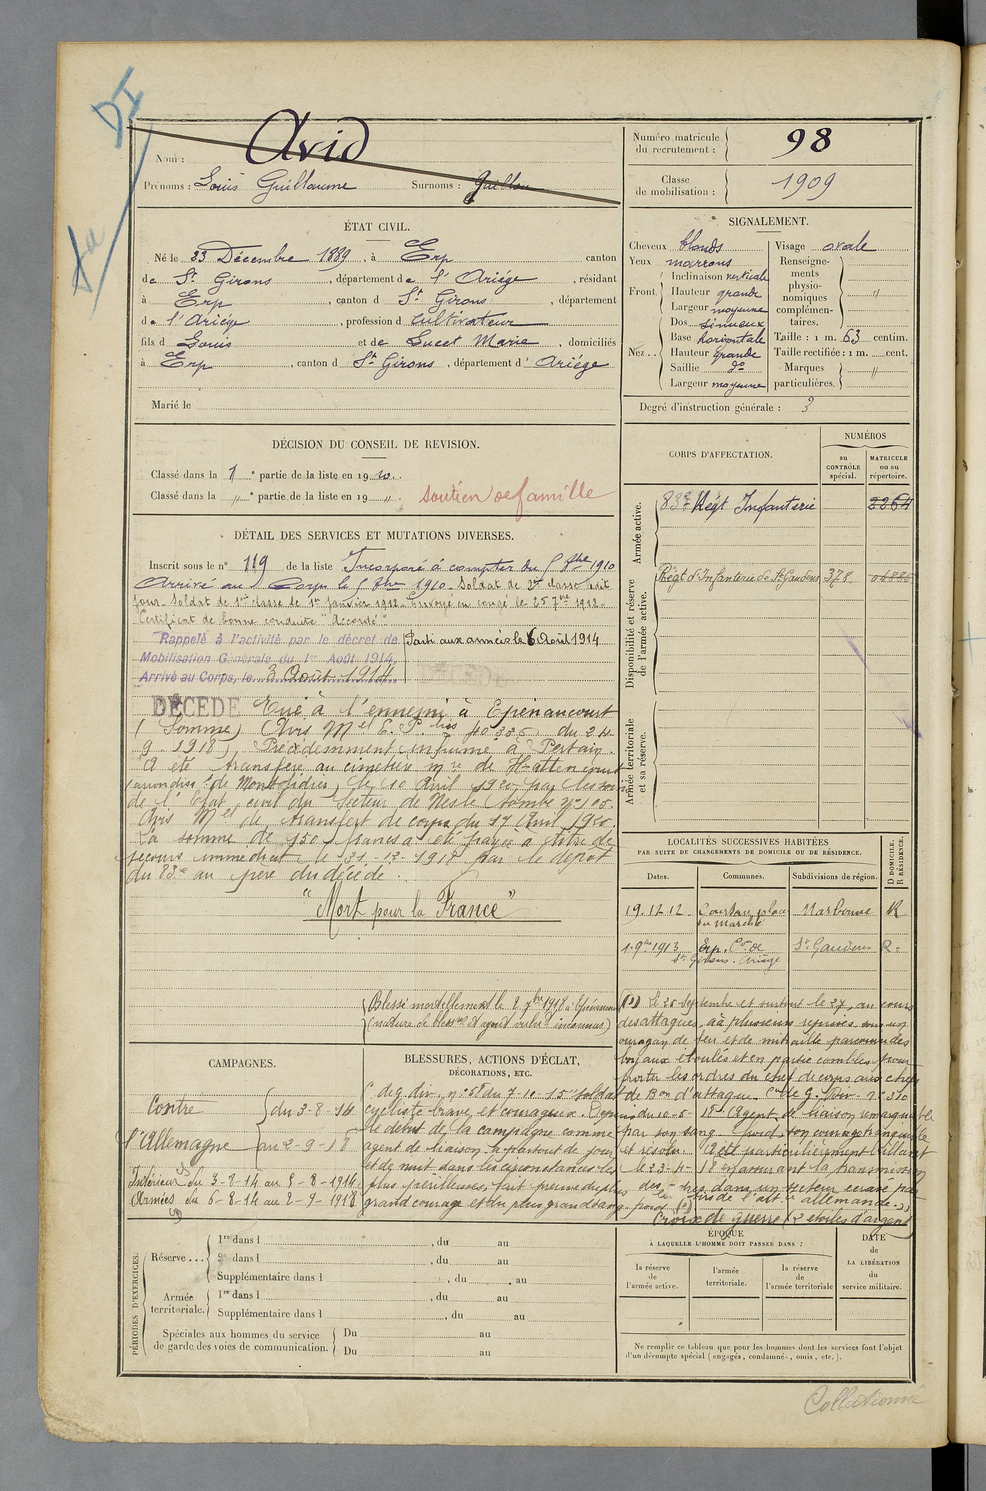 DI
Nom : Avid
Prénoms : Louis Guillaume Surnoms :
Numéro matricule du recrutement : 98
Classe de mobilisation : 1909
ÉTAT CIVIL.
Né le 23 Décembre 1889, à Erp canton
de St Girons, département de l'Ariège, résidant
à Erp, canton d St Girons, département
de l'Ariège, profession d cultivateur
fils d Louis et de Lucet Marie, domiciliés
à Erp, canton d St Girons, département d' Ariége
Marié le
SIGNALEMENT.
Cheveux blonds
Yeux marrons
Front Inclinaison verticale
Hauteur grande
Largeur moyenne
Nez Dos sinueux
Base horizontale
Hauteur grande
Saillie do
Largeur moyenne
Visage ovale
Renseignements physionomiques complémentaires. "
Taille : 1 m. 63 centim.
Taille rectifiée : 1 m. cent.
Marques particulières. "
Degré d'instruction générale : 3
DÉCISION DU CONSEIL DE REVISION.
Classé dans la 1e partie de la liste en 1910.
Classé dans la " e partie de la liste en 19 ".
soutien de famille
DÉTAIL DES SERVICES ET MUTATIONS DIVERSES.
Inscrit sous le n° 119 de la liste Incorporé à compter du 1910
Arrivé au Corps le 1910. Soldat de 2e classe du dit
jour. Soldat de 1re classe le 1er Janvier 1912. Envoyé en congé le 25 7bre 1912.
Certificat de bonne conduite "Accordé".
Rappelé à l'activité par le décret de
Mobilisation Générale du 1er Août 1914.
Arrivé au Corps, le 3 Août 1914
Parti aux armées le 6 Août 1914
DÉCÉDÉ
DÉCÉDÉ Tué à l'ennemi à Epénancourt
(Somme) (Avis Mel du 24
9-1918). Précédemment inhumé à Pertain.
A été transféré au cimetière mre de Hattencourt
de Montdidier, le 10 Avril 1920, par
de l'état civil du Secteur de Nesle (tombe n° 105.
Avis Mel de transfert de corps du 17 Avril 1920.
La somme de 150 francs a été payée à titre de
secours immédiat le 31-12-1918 par le dépôt
du 83e au père du décédé.
"Mort pour la France"
Blessé mortellement le 2 7bre 1918 à Epénancourt
CORPS D'AFFECTATION.
NUMÉROS
au CONTRÔLE spécial.
MATRICULE ou au répertoire.
Armée active.
83e Régt Infanterie 2264
Disponibilité et réserve de l'armée active.
Régt d'Infanterie de St Gaudens 378
Armée territoriale et sa réserve.
LOCALITÉS SUCCESSIVES HABITÉES
PAR SUITE DE CHANGEMENTS DE DOMICILE OU DE RÉSIDENCE.
Dates. Communes. Subdivisions de région. D DOMICILE. R RÉSIDENCE.
19.12.12 Coursan, place du Marché Narbonne R
1.9bre 1913 Erp. Con de St Girons. Ariège St Gaudens R.
CAMPAGNES.
Contre l'Allemagne du 3-8-14 au 2-9-18
Intérieur du 3-8-14 au 5-8-1914
Armées du 6-8-14 au 2-9-1918
BLESSURES, ACTIONS D'ÉCLAT,
DÉCORATIONS, ETC.
soldat
cycliste brave et courageux. Depuis
le début de la campagne comme
agent de liaison a partout de jour
et de nuit dans les circonstances les
plus périlleuses, fait preuve du plus
grand courage et du plus grand sang-froid
(1) Le 25 septembre et surtout le 27, au cours
des attaques, a à plusieurs reprises sous un
ouragan de feu et de mitraille parcouru des
boyaux éboulés et en partie comblés pour
porter les ordres du chef de corps aux chefs
de Bon d'attaque.
Agent de liaison remarquable
par son sang-froid, son courage tranquille
et résolu. A été particulièrement brillant
le 23-4-18 en assurant la transmission
des dans un secteur écrasé par
de l'artie allemande.
Croix de guerre (2 étoiles d'argent
PÉRIODES D'EXERCICES.
Réserve... 1re dans l , du au
2e dans l , du au
Supplémentaire dans l , du au
Armée territoriale. 1re dans l , du au
Supplémentaire dans l , du au
Spéciales aux hommes du service de garde des voies de communication. Du au
Du au
ÉPOQUE
À LAQUELLE L'HOMME DOIT PASSER DANS :
la réserve de l'armée active.
l'armée territoriale.
la réserve de l'armée territoriale
DATE de LA LIBÉRATION du service militaire.
Ne remplir ce tableau que pour les hommes dont les services font l'objet
d'un décompte spécial (engagés, condamnés, omis, etc.).
Collationné